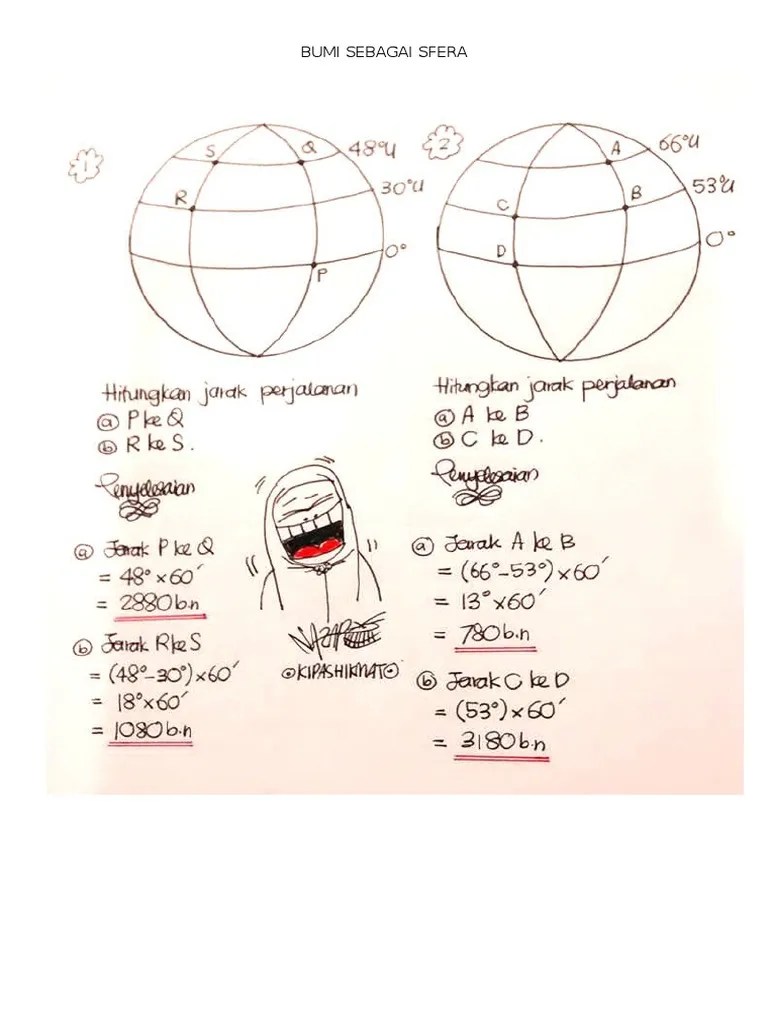 BUMI SEBAGAI SFERA
1
S
Q
48°U
R
30°U
0°
P
Hitungkan jarak perjalanan
(a) P ke Q
(b) R ke S.
Penyelesaian
(a) Jarak P ke Q
= 48° × 60′
= 2880 b.n
(b) Jarak R ke S
= (48° – 30°) × 60′
= 18° × 60′
= 1080 b.n
KIPASHIKMAT
2
A
66°U
C
B
53°U
D
0°
Hitungkan jarak perjalanan
(a) A ke B
(b) C ke D.
Penyelesaian
(a) Jarak A ke B
= (66° – 53°) × 60′
= 13° × 60′
= 780 b.n
(b) Jarak C ke D
= (53°) × 60′
= 3180 b.n